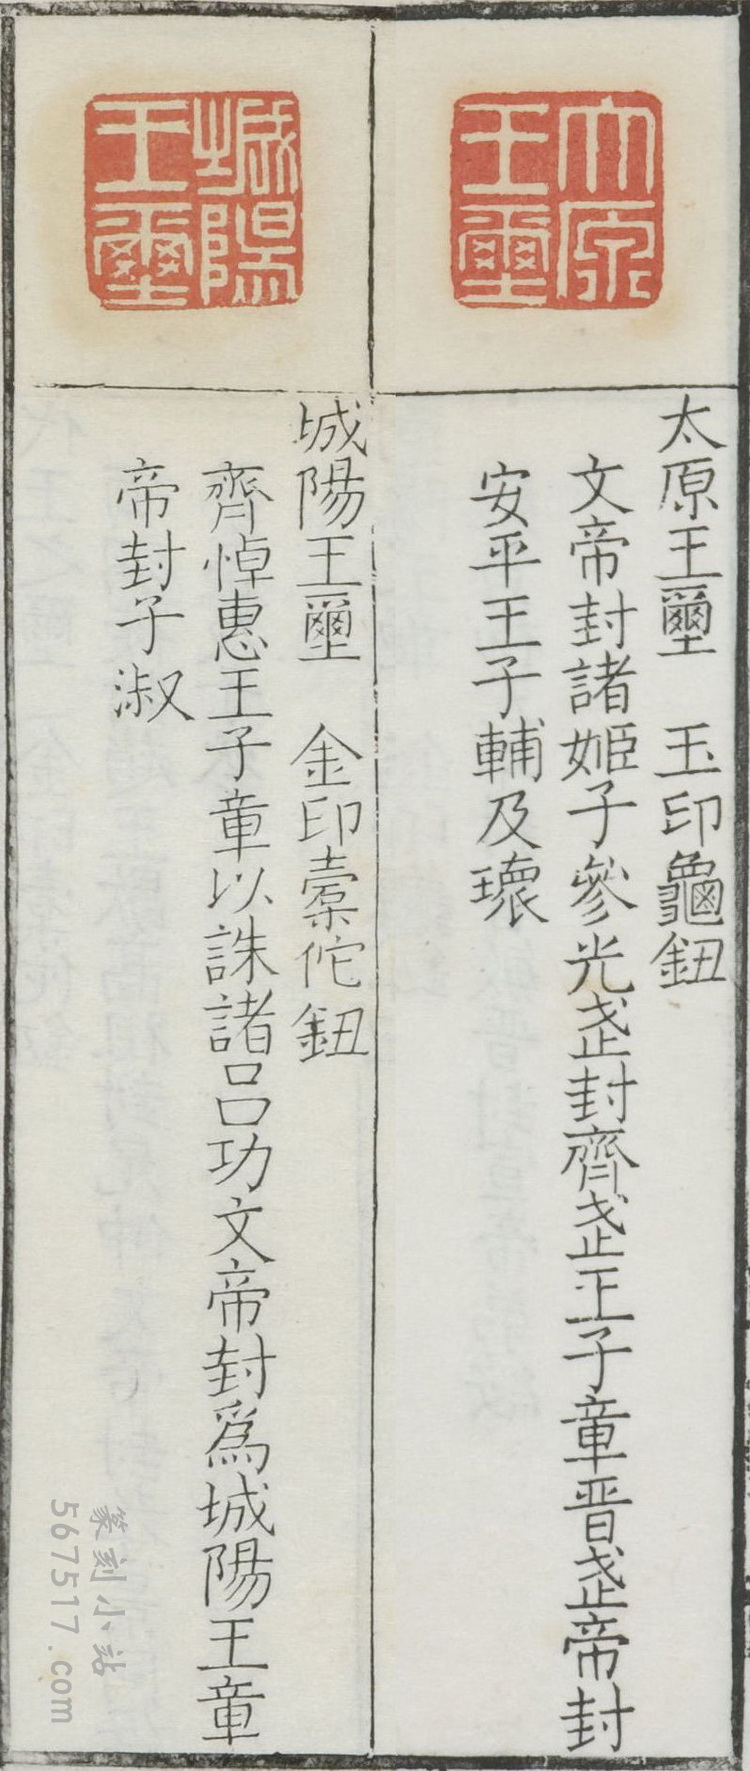 大原王璽
太原王璽 玉印龜鈕
文帝封諸姬子參光武封齊武王子章晋武帝封
安平王子輔及瓌
城陽王璽
城陽王璽 金印橐佗鈕
齊悼惠王子章以誅諸呂功文帝封爲城陽王章
帝封子淑
篆刻小站
567517.com